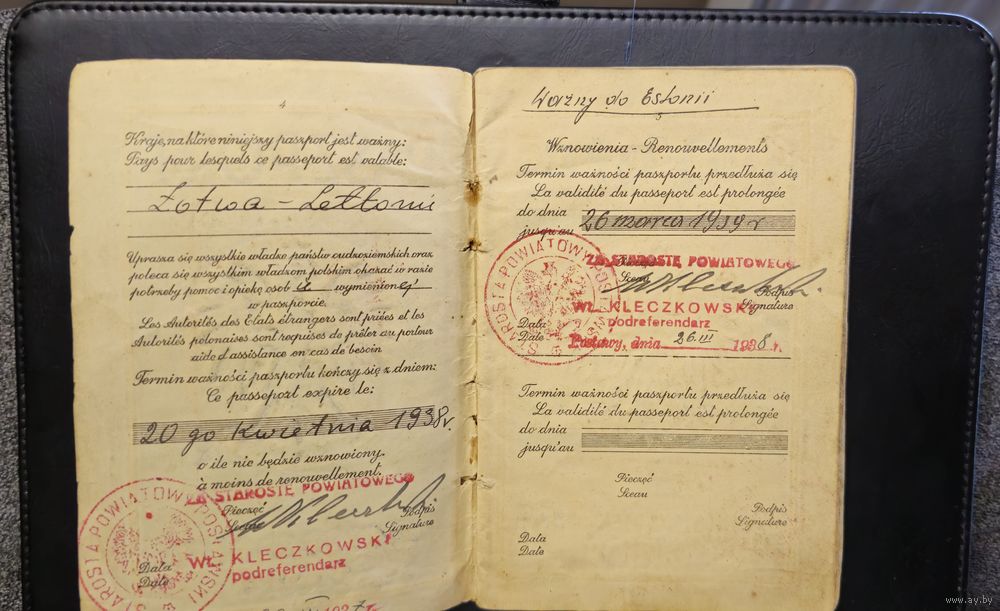 4
Kraje, na które niniejszy paszport jest ważny:
Pays pour lesquels ce passeport est valable:
Łotwa - Lettonie
Uprasza się wszystkie władze państw cudzoziemskich oraz
poleca się wszystkim władzom polskim okazać w razie
potrzeby pomoc i opiekę osobie wymienionej
w paszporcie.
Les Autorités des Etats étrangers sont priées et les
Autorités polonaises sont requises de prêter au porteur
aide d'assistance en cas de besoin
Termin ważności paszportu kończy się z dniem:
Ce passeport expire le:
20 go kwietnia 1938 r.
o ile nie będzie wznowiony.
à moins de renouvellement.
ZA STAROSTĘ POWIATOWEGO
Pieczęć
Sceau
Podpis
Signature
WŁ. KLECZKOWSKI
podreferendarz
Data
Date
STAROSTA POWIATOWY POSTAWSKI
Ważny do Estonii
5
Wznowienia - Renouvellements
Termin ważności paszportu przedłuża się
La validité du passeport est prolongée
do dnia
jusqu'au
26 marca 1939 r
ZA STAROSTĘ POWIATOWEGO
Pieczęć
Sceau
Podpis
Signature
WŁ. KLECZKOWSKI
podreferendarz
Data
Date
Postawy, dnia 26.III 1938 r.
STAROSTA POWIATOWY
Termin ważności paszportu przedłuża się
La validité du passeport est prolongée
do dnia
jusqu'au
Pieczęć
Sceau
Podpis
Signature
Data
Date
www.ay.by